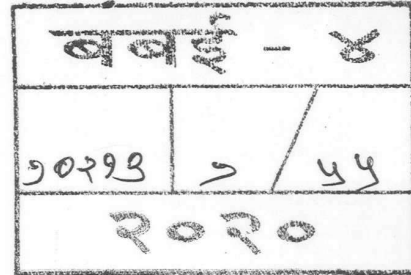 बबई - ४
१०२१९ १ / ५५
२०२०